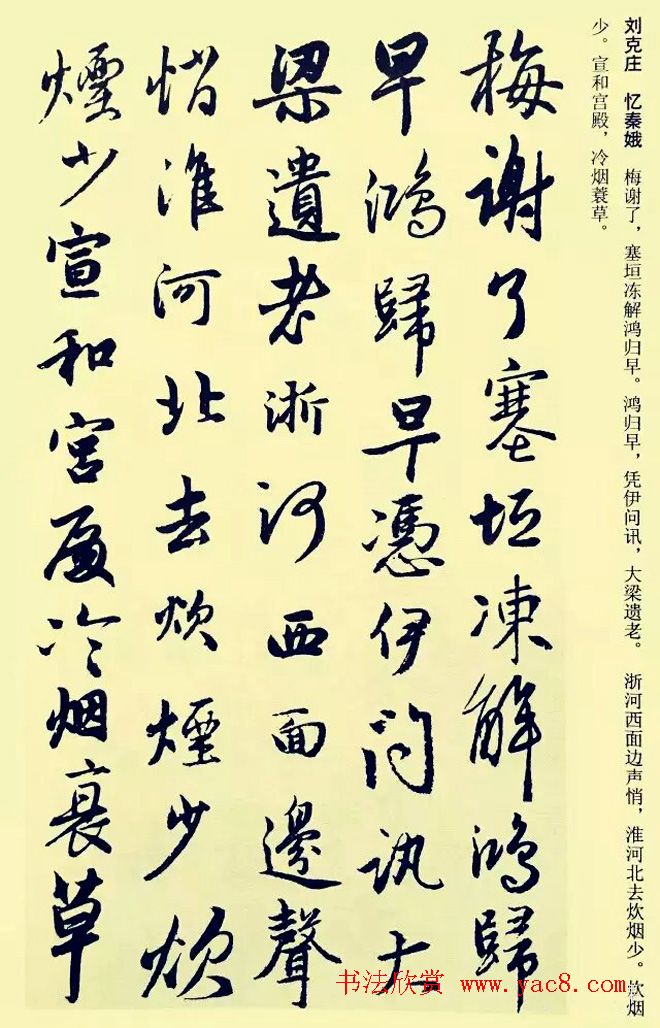 刘克庄　忆秦娥　梅谢了，塞垣冻解鸿归早。鸿归早，凭伊问讯，大梁遗老。　浙河西面边声悄，淮河北去炊烟少。炊烟
少。宣和宫殿，冷烟蓑草。
梅謝了塞垣凍解鴻歸
早鴻歸早憑伊問訊大
梁遺老浙河西面邊聲
悄淮河北去炊煙少炊
煙少宣和宮殿冷烟衰草
书法欣赏 www.yac8.com